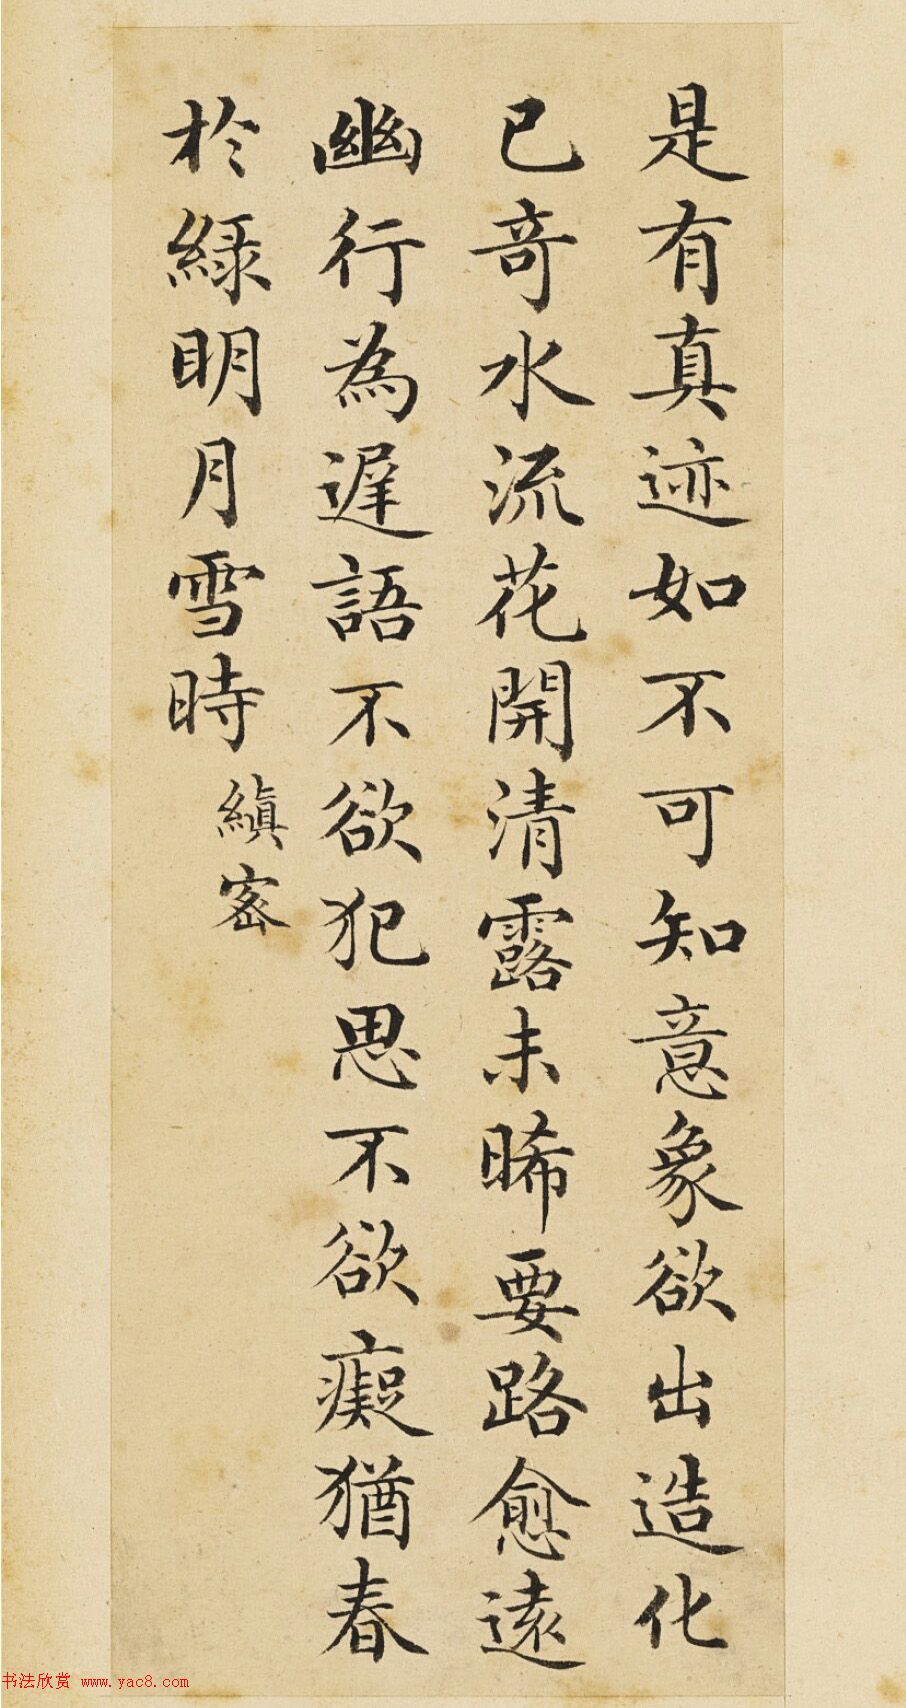 是有真迹如不可知意象欲出造化
已奇水流花開清露未晞要路愈遠
幽行為遲語不欲犯思不欲癡猶春
於綠明月雪時
縝密
书法欣赏 www.yac8.com